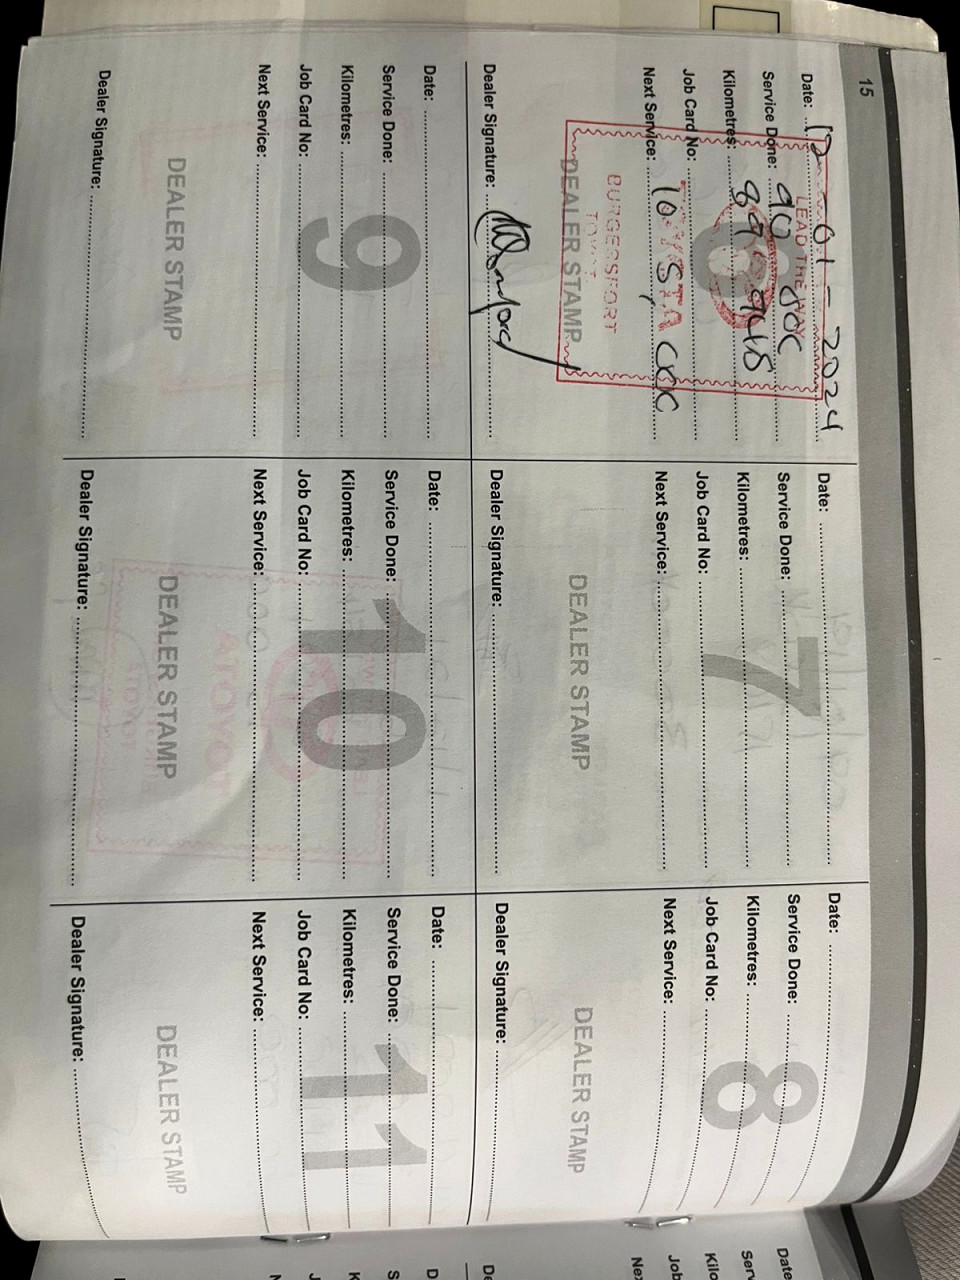 15
Date: 12-01-2024
Service Done: 90 000
Kilometres:
Job Card No:
Next Service:
LEAD THE WAY
BURGERSFORT
DEALER STAMP
Dealer Signature:
7
Date:
Service Done:
Kilometres:
Job Card No:
Next Service:
DEALER STAMP
Dealer Signature:
8
Date:
Service Done:
Kilometres:
Job Card No:
Next Service:
DEALER STAMP
Dealer Signature:
9
Date:
Service Done:
Kilometres:
Job Card No:
Next Service:
DEALER STAMP
Dealer Signature:
10
Date:
Service Done:
Kilometres:
Job Card No:
Next Service:
DEALER STAMP
Dealer Signature:
11
Date:
Service Done:
Kilometres:
Job Card No:
Next Service:
DEALER STAMP
Dealer Signature: